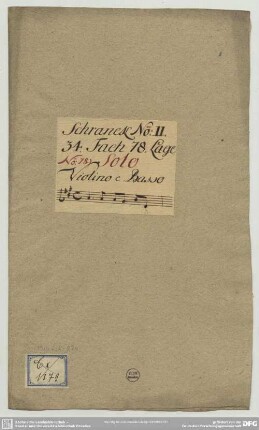 Schranck No: II.
34. Fach 78. Lage
No. 13) Solo
Violino e Basso
Cx
1178
DFG